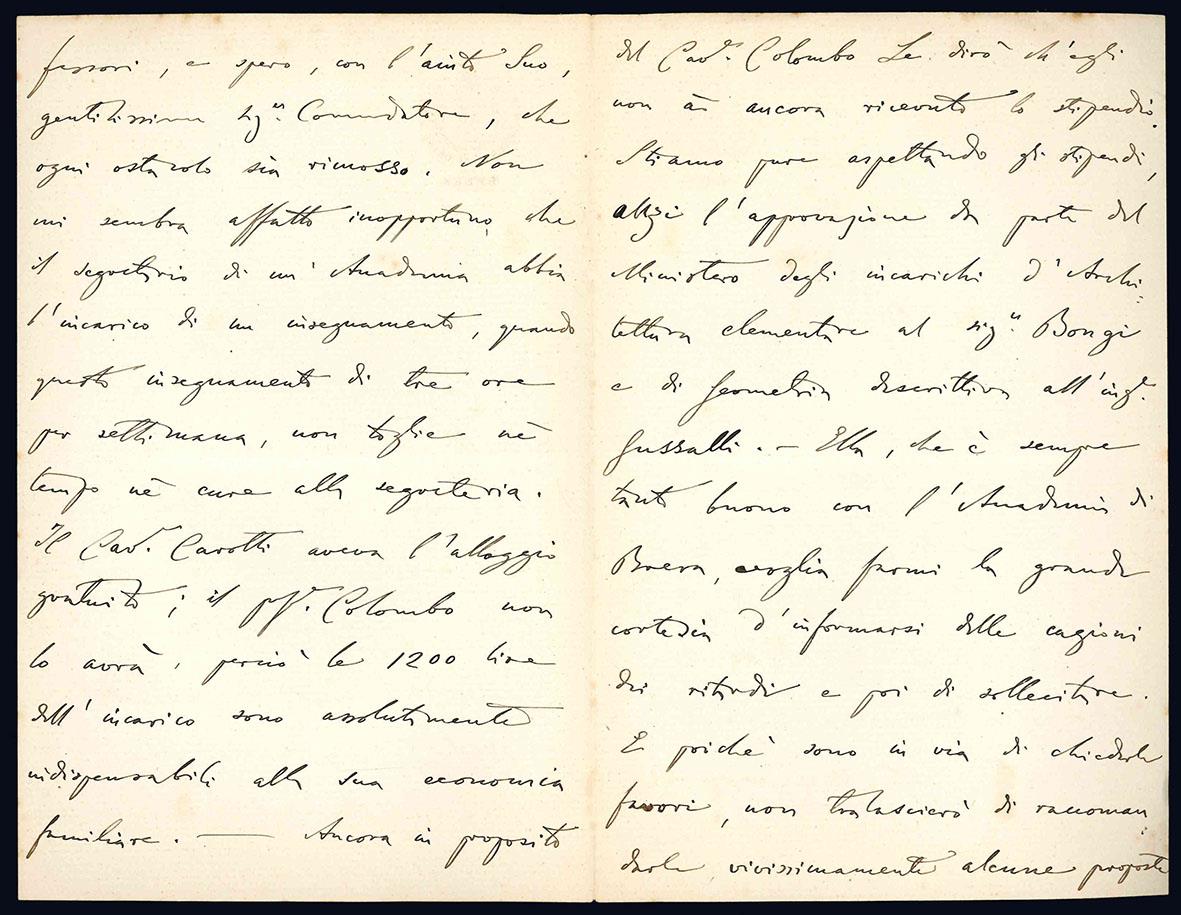 fessori, e spero, con l'aiuto Suo,
gentilissimo Sig.r Comendatore, che
ogni ostacolo sia rimosso. Non
mi sembra affatto inopportuno che
il segretario di un' Accademia abbia
l'incarico di un insegnamento, quando
questo insegnamento di tre ore
per settimana, non toglie nè
tempo nè cure alla segreteria.
Il Cav.r Carotti aveva l'alloggio
gratuito; il prof.r Colombo non
lo avrà; perciò le 1200 lire
dell'incarico sono assolutamente
indispensabili alla sua economia
familiare. — Ancora in proposito
del Cav.r Colombo Le dirò ch'egli
non à ancora ricevuto lo stipendio.
Stiamo pure aspettando gli stipendi,
anzi l'approvazione da parte del
Ministero degli incarichi d'Archi-
tettura elementare al sig.r Bongi
e di Geometria descrittiva all'ing.r
Gussalli. — Ella, che è sempre
tanto buono con l'Accademia di
Brera, voglia farmi la grande
cortesia d'informarsi delle cagioni
dei ritardi e poi di sollecitare.
E poichè sono in via di chiederle
favori, non tralascierò di raccoman
darle vivissimamente alcune proposte